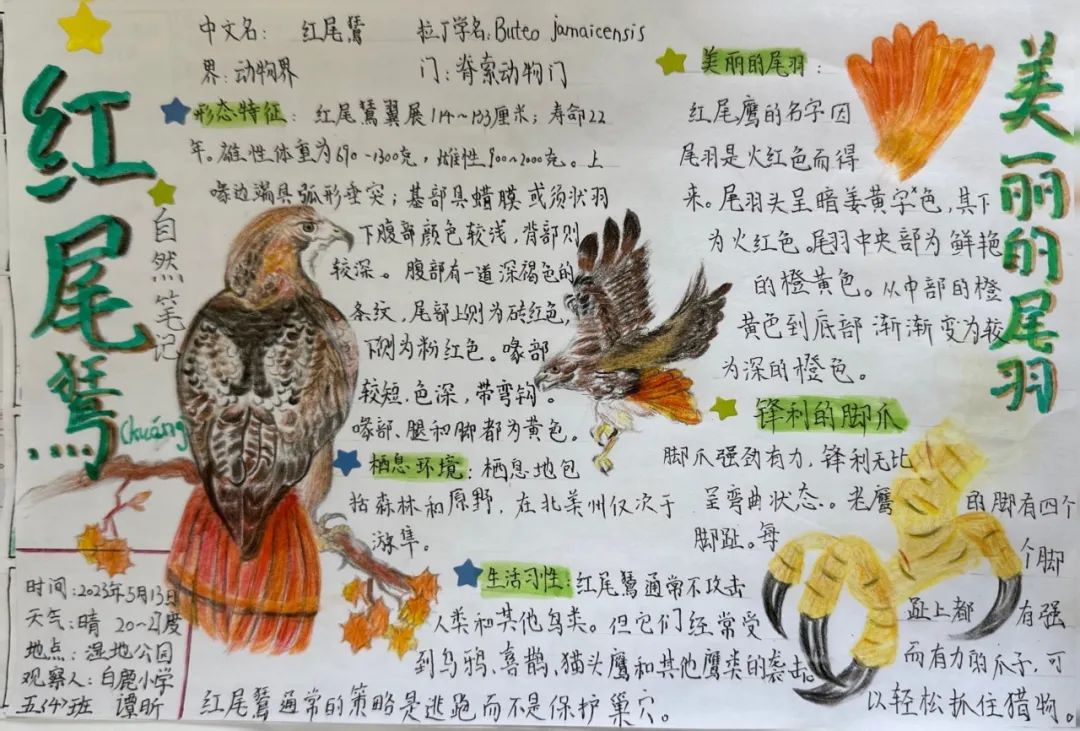 红尾鵟
Chuáng
自然笔记
中文名： 红尾鵟 拉丁学名:Buteo jamaicensis
界：动物界 门：脊索动物门
形态特征：红尾鵟翼展114~133厘米；寿命22
年。雄性体重为690-1300克，雌性900~2000克。上
喙边端具弧形垂突；基部具蜡膜或须状羽
下腹部颜色较浅，背部则
较深。腹部有一道深褐色的
条纹，尾部上则为砖红色，
下侧为粉红色。喙部
较短，色深，带弯钩。
喙部、腿和脚都为黄色。
栖息环境：栖息地包
括森林和原野，在北美州仅次于
游隼。
生活习性：红尾鵟通常不攻击
人类和其他鸟类。但它们经常受
到乌鸦、喜鹊、猫头鹰和其他鹰类的袭击。
红尾鵟通常的策略是逃跑而不是保护巢穴。
时间：2023年5月13日
天气：晴 20~27度
地点：湿地公园
观察人：白鹿小学
五〈4〉班 谭昕
美丽的尾羽
美丽的尾羽：
红尾鹰的名字因
尾羽是火红色而得
来。尾羽头呈暗姜黄字色，其下
为火红色。尾羽中央部为鲜艳
的橙黄色。从中部的橙
黄色到底部渐渐变为较
为深的橙色。
锋利的脚爪
脚爪强劲有力，锋利无比
呈弯曲状态。老鹰的脚有四个
脚趾。每个脚
趾上都有强
而有力的爪子，可
以轻松抓住猎物。